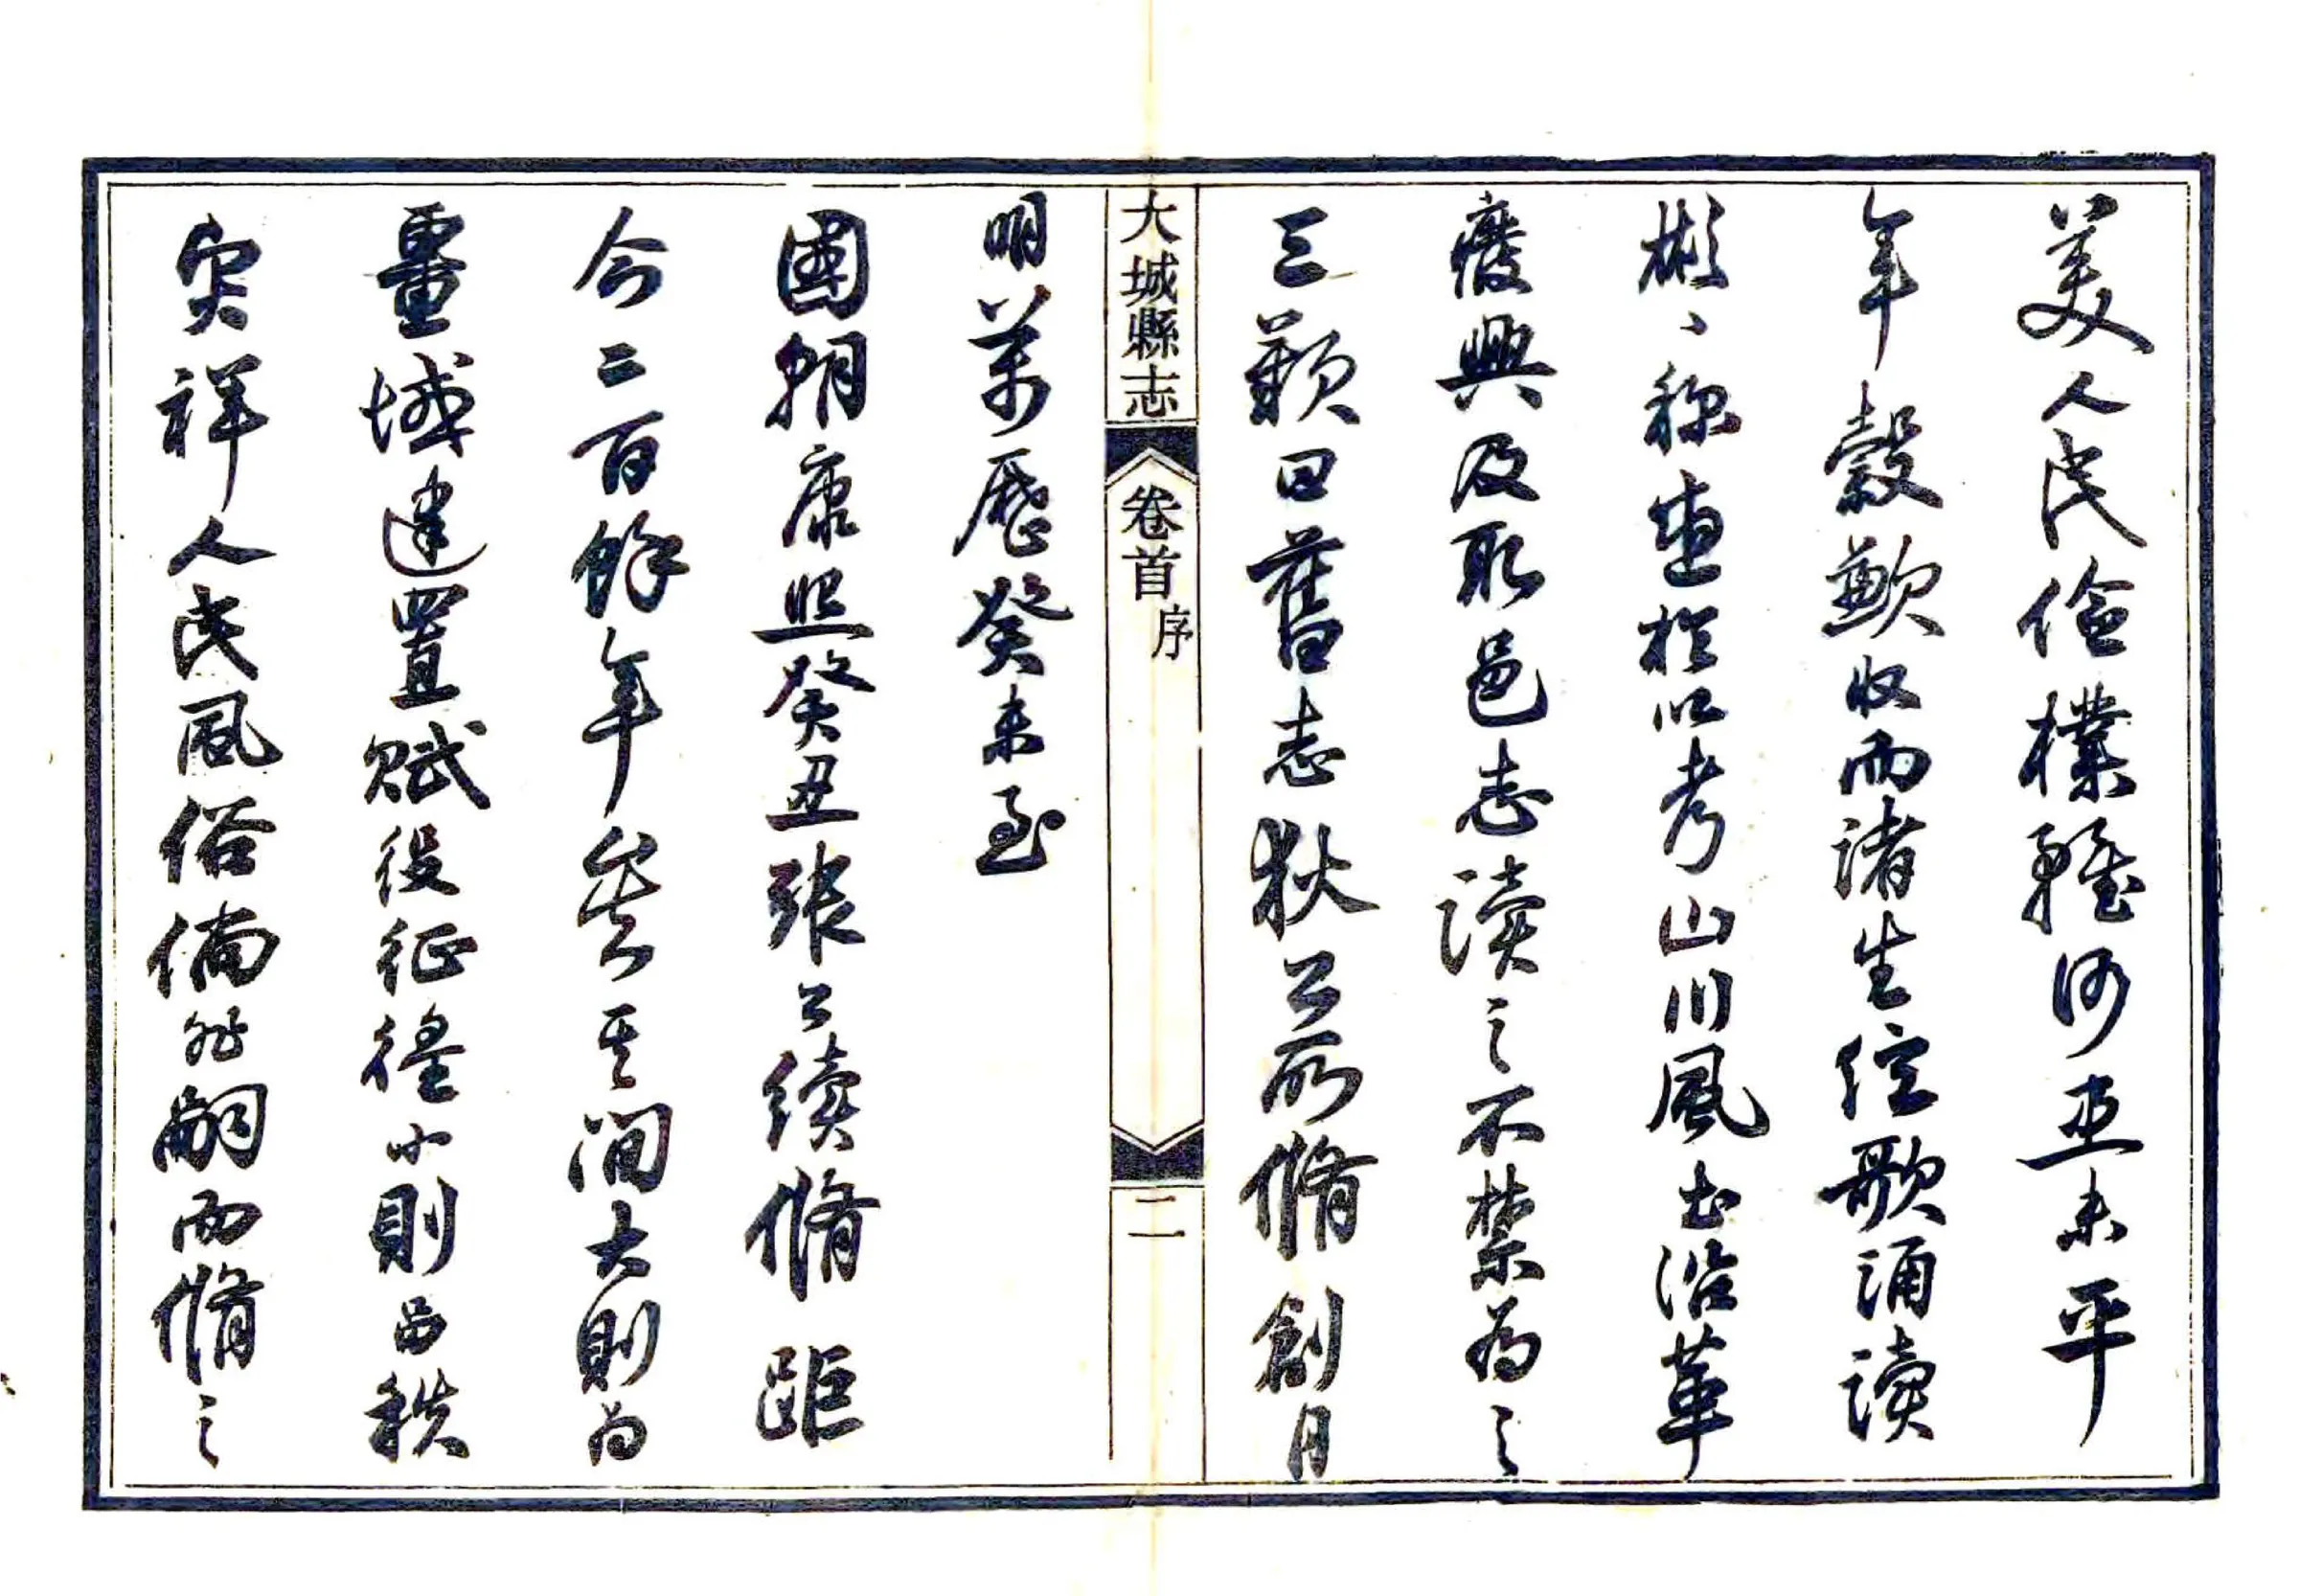 美人民儉樸雖河未平
年穀歉收而諸生絃歌誦讀
彬〻稱盛於以考山川風土沿革
廢興及取邑志讀之不禁為之
三歎曰舊志狄公所脩創自
大城縣志 卷首 序 二
明萬歷癸未至
國朝康熙癸丑張公續脩距
今二百餘年矣其間大則為
畺域建置賦役征徭小則品秩
災祥人民風俗倘非嗣而脩之